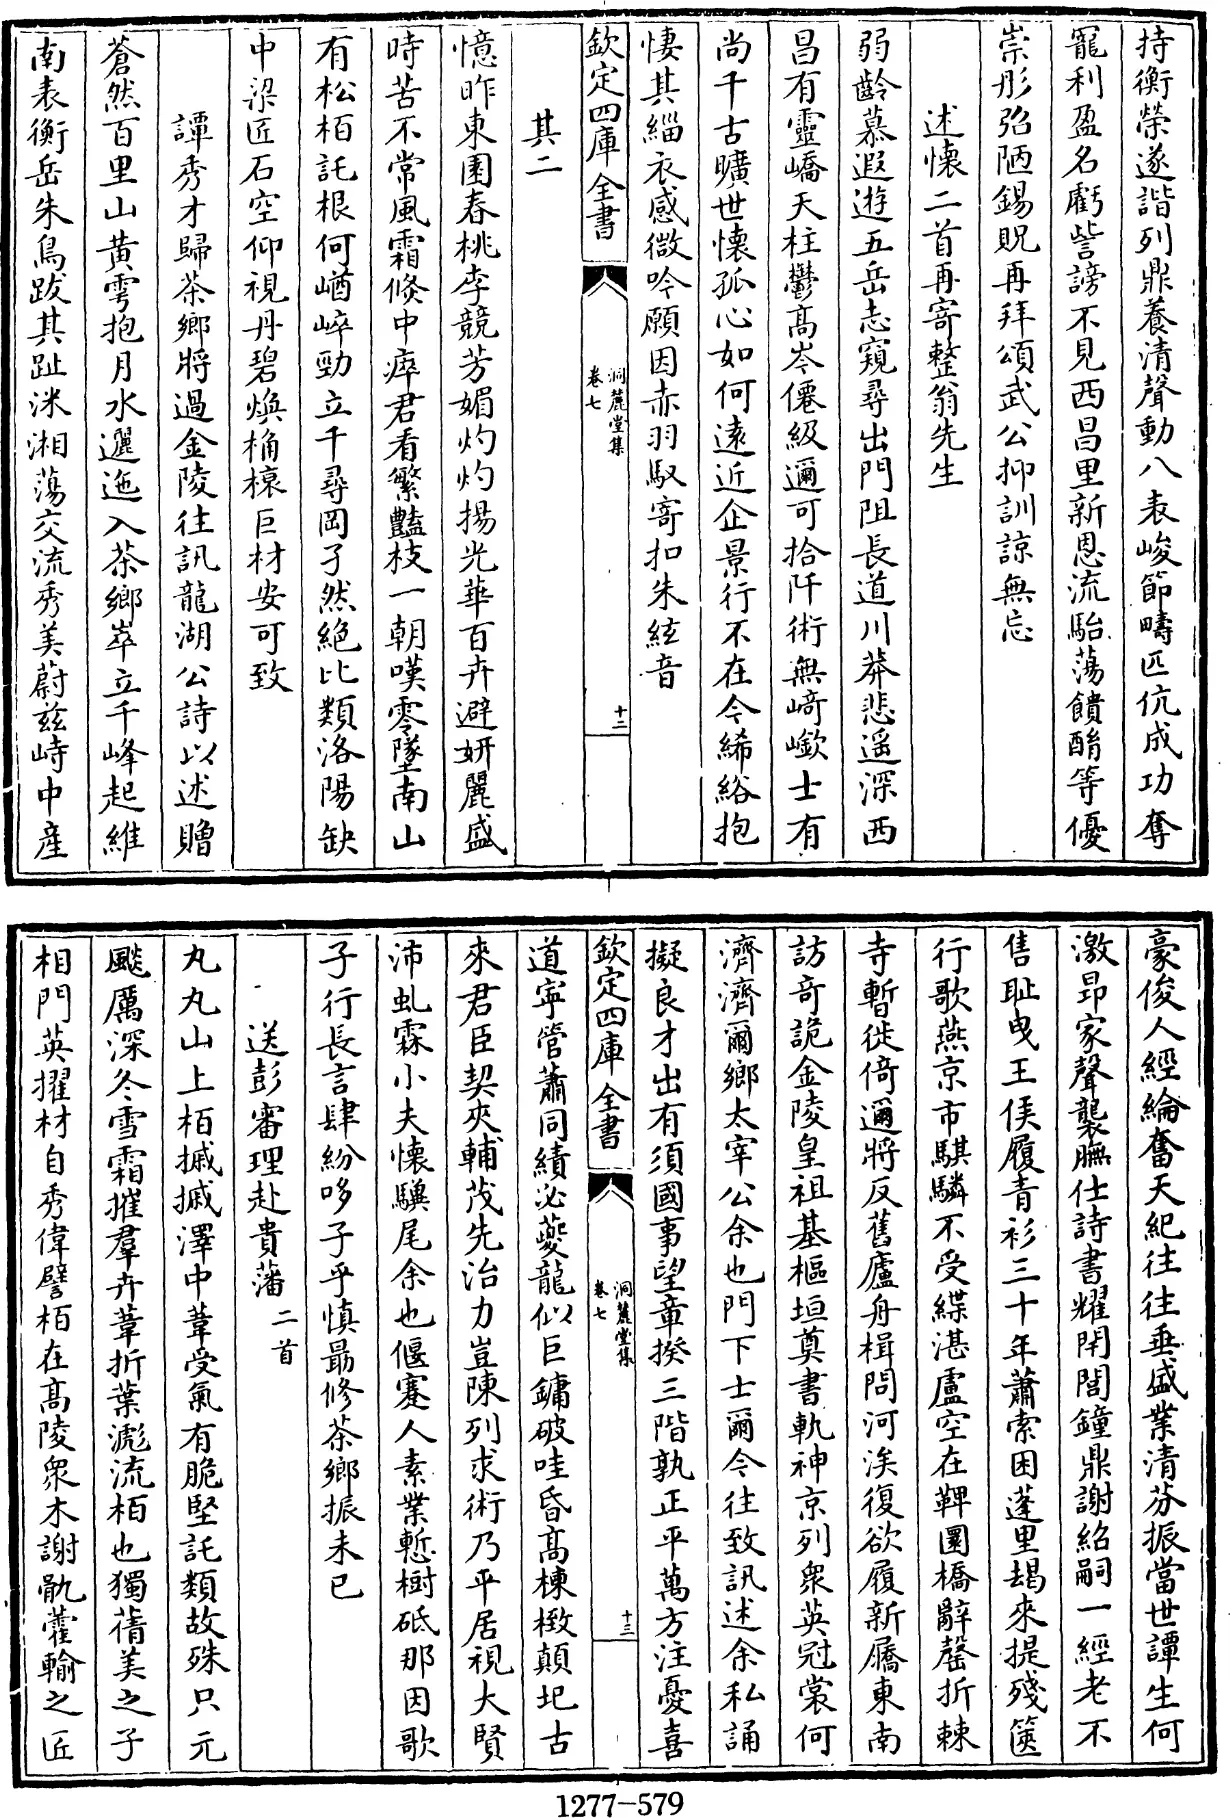 持衡榮遂諧列鼎養清聲動八表峻節疇匹伉成功奪
寵利盈名虧訾謗不見西昌里新恩流駘蕩饋酳等優
崇彤弨陋錫貺再拜頌武公抑訓諒無忘
述懷二首再寄整翁先生
弱齡慕遐遊五岳志窺尋出門阻長道川莽悲遥深西
昌有靈嶠天柱鬱髙岑僊級邇可拾阡術無﨑嶔士有
尚千古曠世懷孤心如何遠近企景行不在今絺綌抱
悽其緇衣感微吟願因赤羽馭寄扣朱絃音
欽定四庫全書
洞麓堂集
卷七
十二
其二
憶昨東園春桃李競芳媚灼灼揚光華百卉避妍麗盛
時苦不常風霜倐中瘁君看繁豔枝一朝嘆零墜南山
有松栢託根何崷崪勁立千尋岡孑然絶比類洛陽缺
中梁匠石空仰視丹碧煥桷榱巨材安可致
譚秀才歸茶鄉將過金陵往訊龍湖公詩以述贈
蒼然百里山黃雲抱月水邐迤入茶鄉崒立千峰起維
南表衡岳朱鳥跋其趾洣湘蕩交流秀美蔚兹峙中産
豪俊人經綸奮天紀往往垂盛業清芬振當世譚生何
激昻家聲襲膴仕詩書耀閈閭鐘鼎謝紹嗣一經老不
售耻曳王侯履青衫三十年蕭索困蓬里朅來提殘篋
行歌燕京市騏驎不受緤湛盧空在鞞圜橋辭罄折棘
寺暫徙倚邇將反舊廬舟楫問河涘復欲履新屩東南
訪奇詭金陵皇祖基樞垣奠書軌神京列衆英冠裳何
濟濟爾鄉太宰公余也門下士爾今往致訊述余私誦
擬良才出有須國事望章揆三階孰正平萬方注憂喜
欽定四庫全書
洞麓堂集
卷七
十三
道寜管蕭同績必䕫龍似巨鏞破哇昏髙棟橃顛圮古
來君臣契夾輔茂先治力豈陳列求術乃平居視大賢
沛虬霖小夫懷驥尾余也偃蹇人素業慙樹砥那因歌
子行長言肆紛哆子乎慎朂修茶鄉振未已
送彭審理赴貴藩二首
丸丸山上栢摵摵澤中葦受氣有脆堅託類故殊只元
颷厲深冬雪霜摧羣卉葦折葉漉流栢也獨蒨美之子
相門英擢材自秀偉譬栢在髙陵衆木謝骫靃輸之匠
1277—579